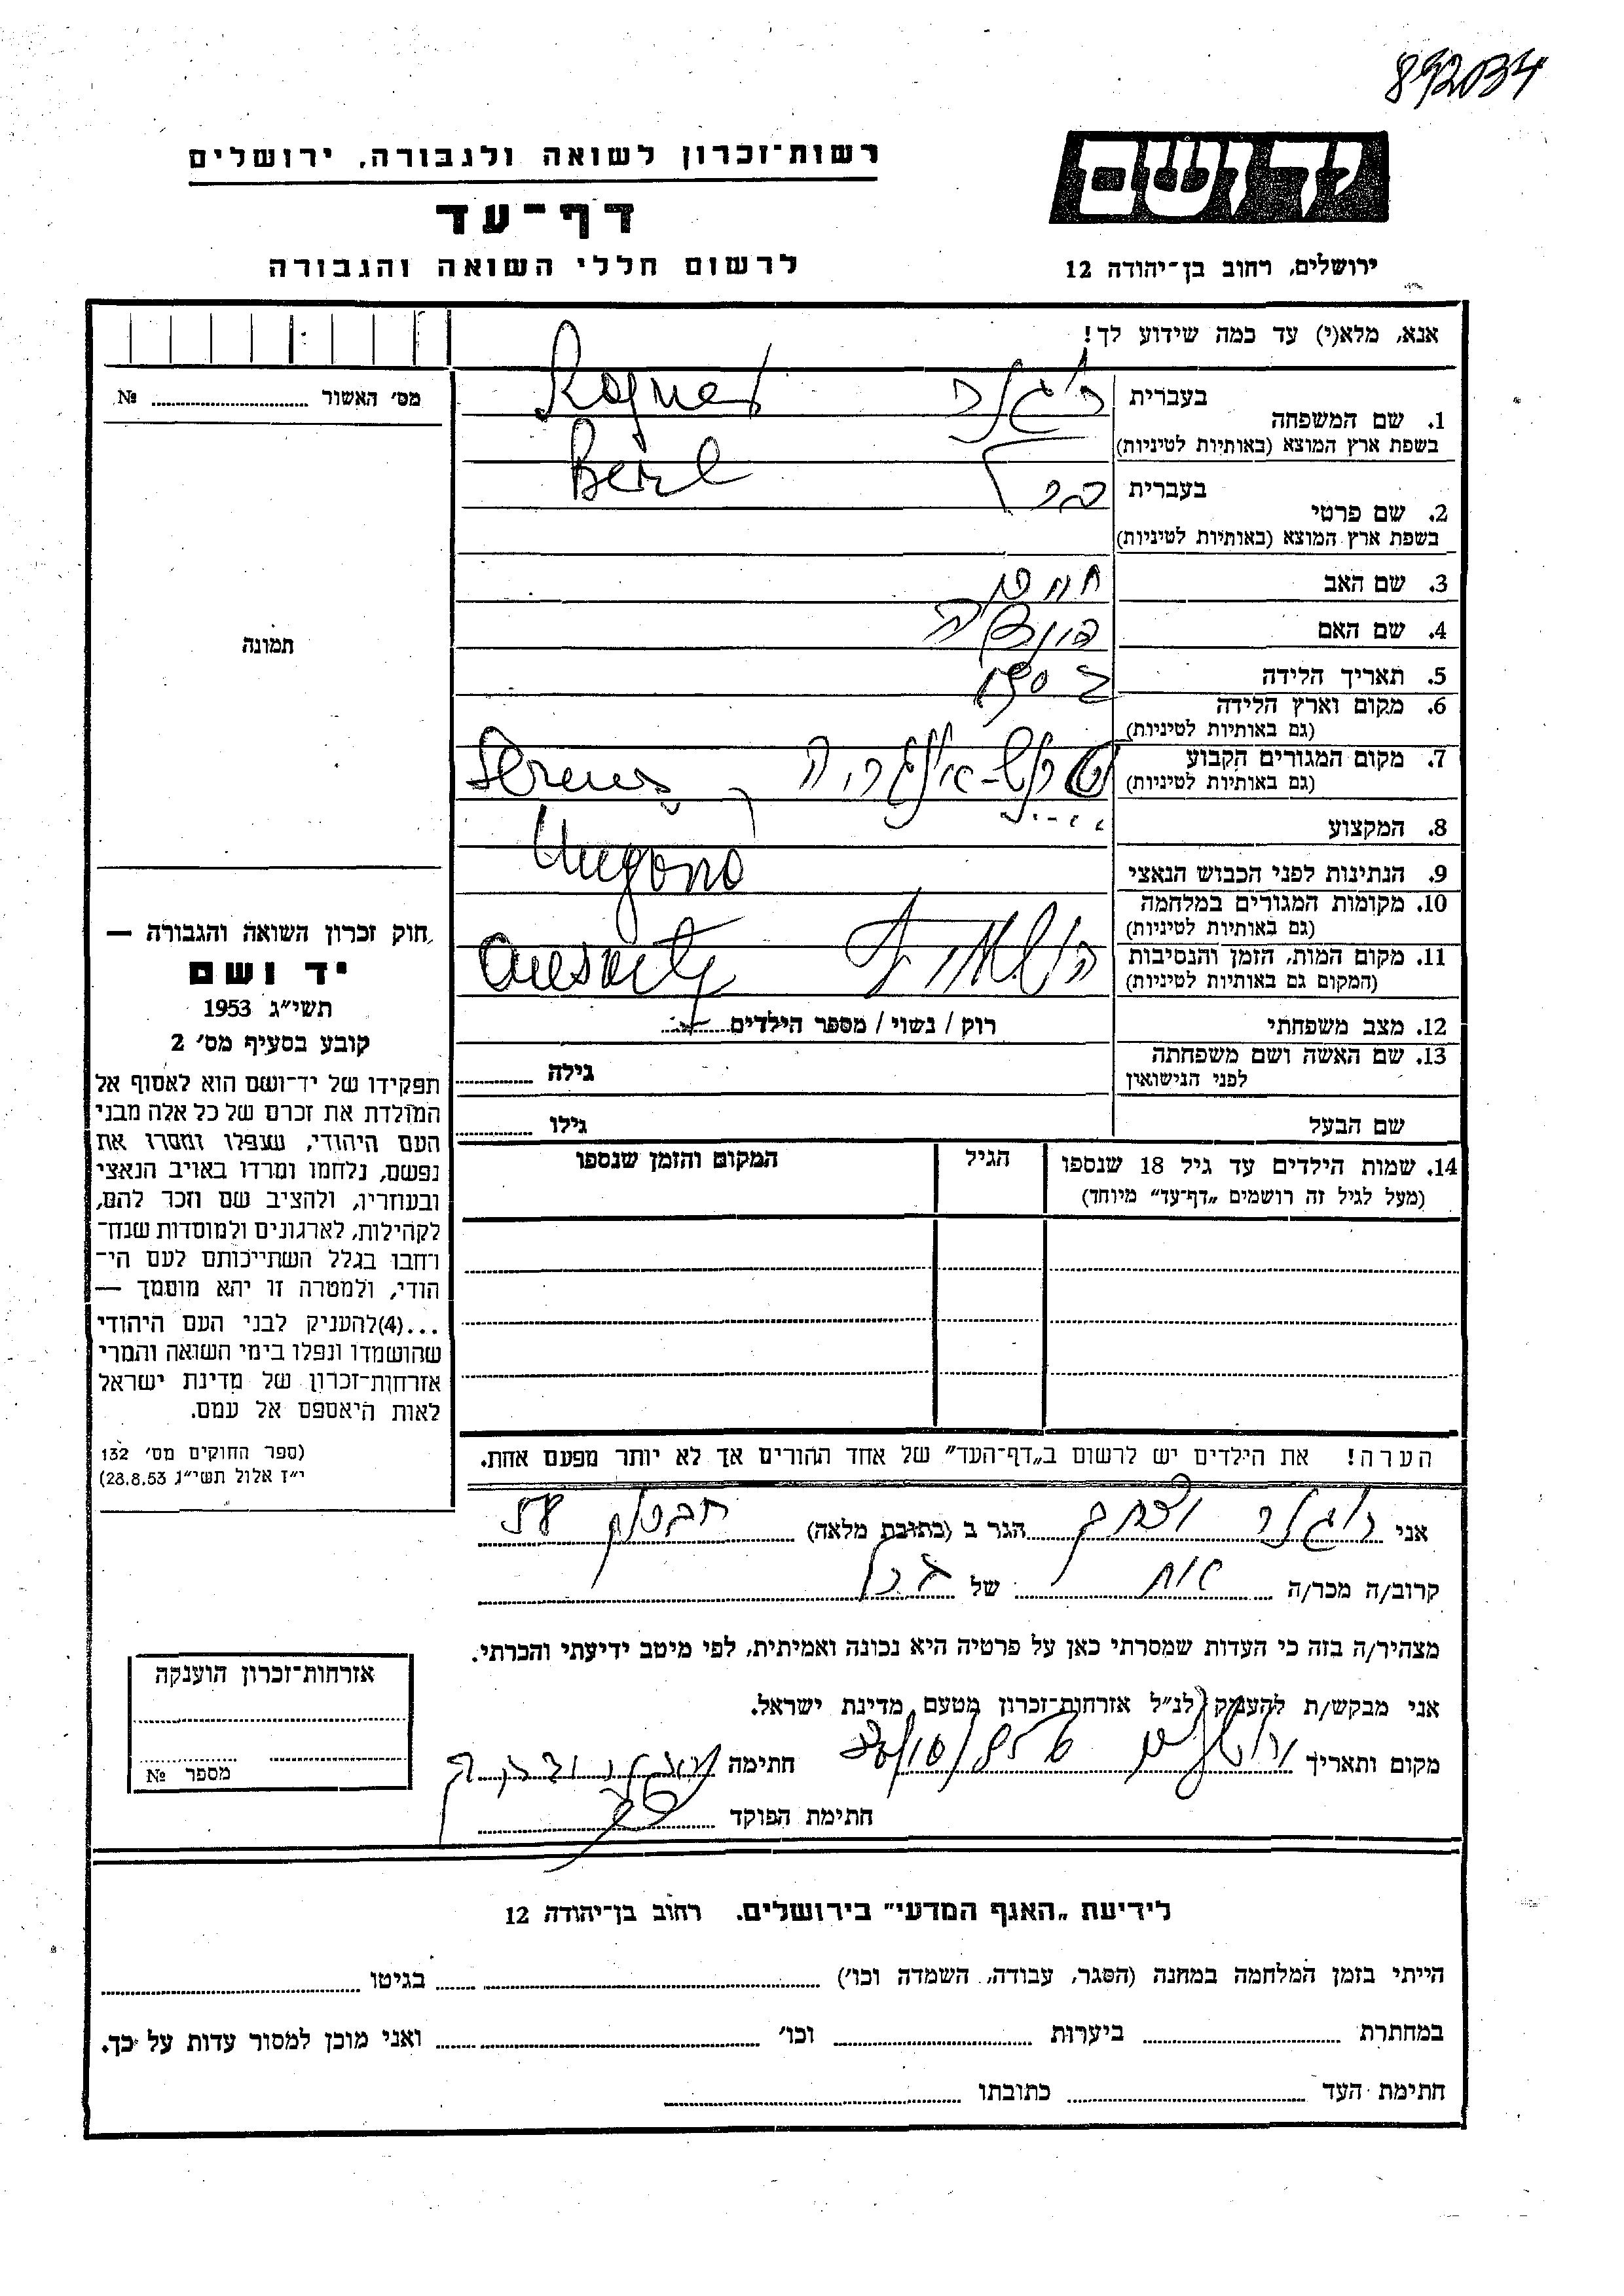 892034
יד ושם
רשות־זכרון לשואה ולגבורה, ירושלים
דף־עד
לרשום חללי השואה והגבורה
ירושלים, רחוב בן־יהודה 12
אנא, מלא(י) עד כמה שידוע לך!
מס׳ האשור № ........
1. שם המשפחה
בעברית
בשפת ארץ המוצא (באותיות לטיניות)
2. שם פרטי
בעברית ברל
Berl
בשפת ארץ המוצא (באותיות לטיניות)
3. שם האב
4. שם האם
5. תאריך הלידה
6. מקום וארץ הלידה
(גם באותיות לטיניות)
7. מקום המגורים הקבוע
(גם באותיות לטיניות)
8. המקצוע
9. הנתינות לפני הכבוש הנאצי
10. מקומות המגורים במלחמה
(גם באותיות לטיניות)
11. מקום המות, הזמן והנסיבות
(המקום גם באותיות לטיניות)
12. מצב משפחתי רוק / נשוי / מספר הילדים
13. שם האשה ושם משפחתה
לפני הנישואין
גילה ........
שם הבעל גילו ........
14. שמות הילדים עד גיל 18 שנספו
(מעל לגיל זה רושמים „דף־עד" מיוחד)
הגיל
המקום והזמן שנספו
הערה! את הילדים יש לרשום ב„דף־העד" של אחד ההורים אך לא יותר מפעם אחת.
תמונה
חוק זכרון השואה והגבורה —
יד ושם
תשי״ג 1953
קובע בסעיף מס׳ 2
תפקידו של יד־ושם הוא לאסוף אל
המולדת את זכרם של כל אלה מבני
העם היהודי, שנפלו ומסרו את
נפשם, נלחמו ומרדו באויב הנאצי
ובעוזריו, ולהציב שם וזכר להם,
לקהילות, לארגונים ולמוסדות שנח־
רחבו בגלל השתייכותם לעם הי־
הודי, ולמטרה זו יהא מוסמך —
...(4)להעניק לבני העם היהודי
שהושמדו ונפלו בימי השואה והמרי
אזרחות־זכרון של מדינת ישראל
לאות היאספם אל עמם.
(ספר החוקים מס׳ 132
י״ז אלול תשי״ג 28.8.53)
אני הגר ב (כתובת מלאה)
קרוב/ה מכר/ה אח של ברל
מצהיר/ה בזה כי העדות שמסרתי כאן על פרטיה היא נכונה ואמיתית, לפי מיטב ידיעתי והכרתי.
אני מבקש/ת להעניק לנ״ל אזרחות־זכרון מטעם מדינת ישראל.
מקום ותאריך ירושלים חתימה
חתימת הפוקד
אזרחות־זכרון הוענקה
מספר №
לידיעת „האגף המדעי" בירושלים. רחוב בן־יהודה 12
הייתי בזמן המלחמה במחנה (הסגר, עבודה, השמדה וכו׳) ........ בגיטו ........
במחתרת ........ ביערות ........ וכו׳ ........ ואני מוכן למסור עדות על כך.
חתימת העד ........ כתובתו ........